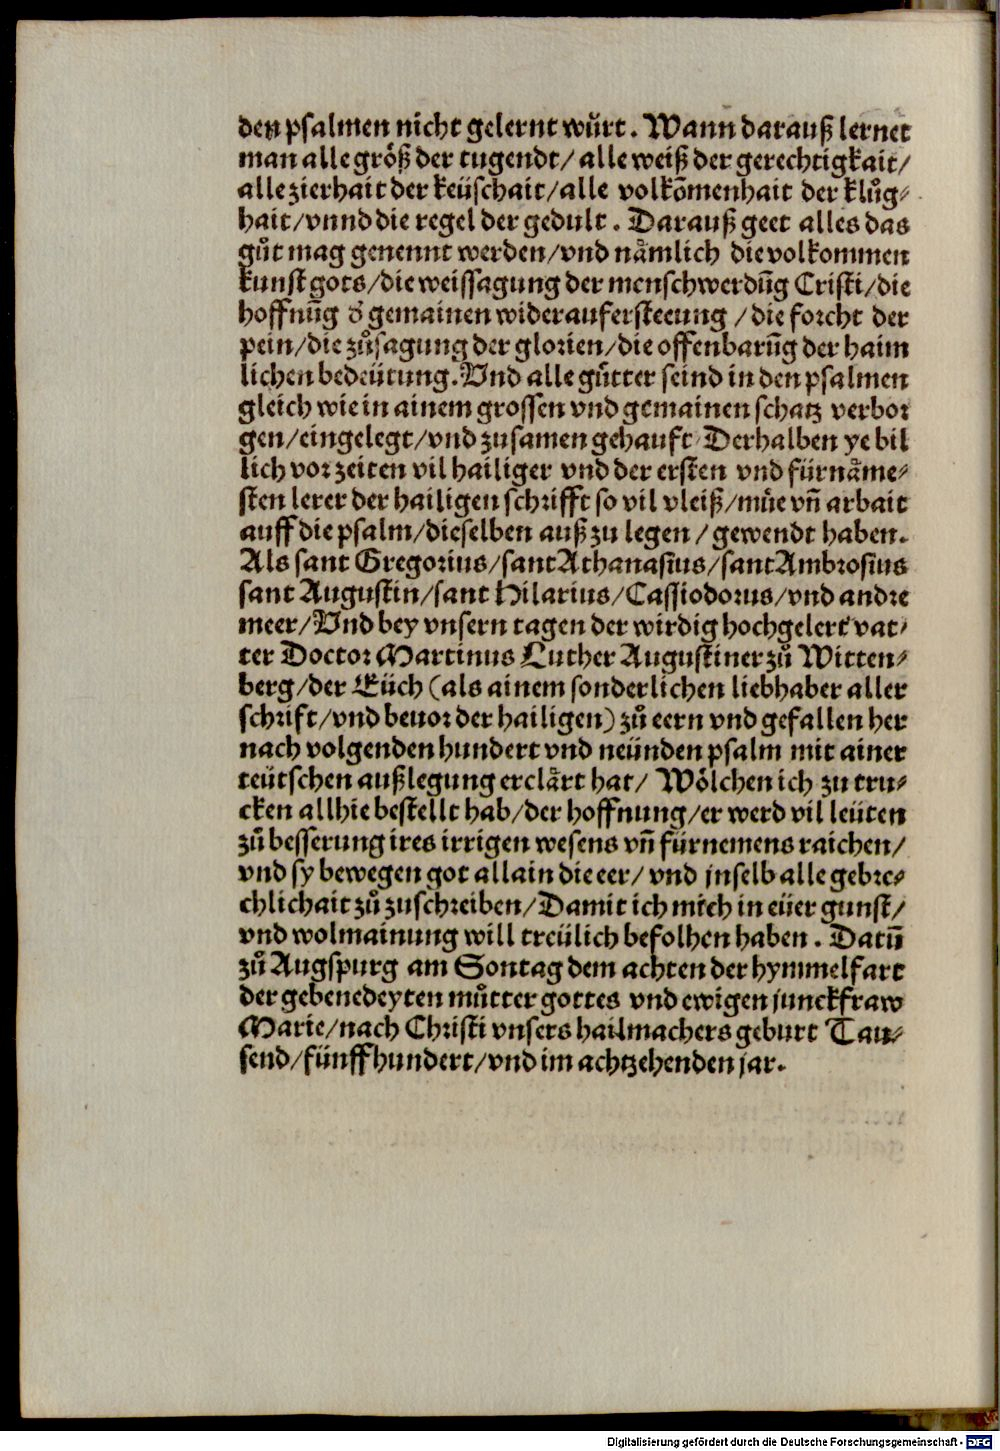 den psalmen nicht gelernt wu̇rt. Wann darauß lernet
man alle größ der tugendt/ alle weiß der gerechtigkait/
alle zierhait der keüschait/alle volkōmenhait der klůg-
hait/vnnd die regel der gedult. Darauß geet alles das
gůt mag genennt werden/vnd nämlich die volkommen
kunst gots/die weissagung der menschwerdūg Cristi/die
hoffnūg d̛ gemainen wideraufersteeung /die forcht der
pein/die zůsagung der glorien/die offenbarūg der haim
lichen bedeütung. Vnd alle gůtter seind in den psalmen
gleich wie in ainem grossen vnd gemainen schatz verbor
gen/eingelegt/vnd zusamen gehauft/Derhalben ye bil
lich vor zeiten vil hailiger vnd der ersten vnd fürnäme-
sten lerer der hailigen schrifft so vil vleiß/můe vn̄ arbait
auff die psalm/dieselben auß zu legen/ gewendt haben.
Als sant Gregorius/sant Athanasius/sant Ambrosius
sant Augustin/sant Hilarius/Cassiodorus/vnd andre
meer/Vnd bey vnsern tagen der wirdig hochgelert vat-
ter Doctor Martinus Luther Augustiner zů Witten-
berg/der Eüch (als ainem sonderlichen liebhaber aller
schrift/vnd beuor der hailigen) zů eern vnd gefallen her
nach volgenden hundert vnd neünden psalm mit ainer
teütschen außlegung erclärt hat/ Wölchen ich zu tru-
cken allhie bestellt hab/der hoffnung/er werd vil leüten
zů besserung ires irrigen wesens vn̄ fürnemens raichen/
vnd sy bewegen got allain die eer/ vnd jnselb alle gebre-
chlichait zů zuschreiben/Damit ich mich in eüer gunst/
vnd wolmainung will treülich befolhen haben. Datū
zů Augspurg am Sontag dem achten der hymmelfart
der gebenedeyten můtter gottes vnd ewigen junckfraw
Marie/nach Christi vnsers hailmachers geburt Tau-
send/fünffhundert/vnd im achtzehenden jar.
Digitalisierung gefördert durch die Deutsche Forschungsgemeinschaft - DFG